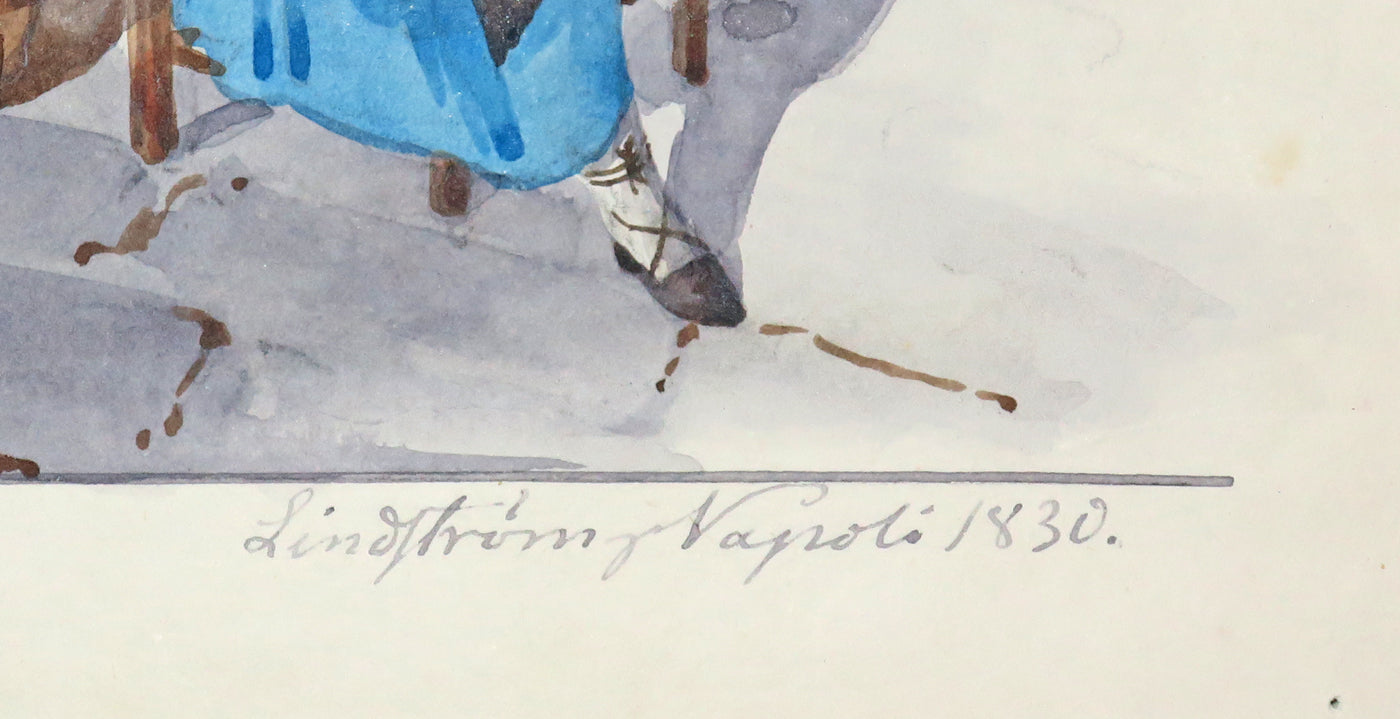 Lindström, Napoli 1830.